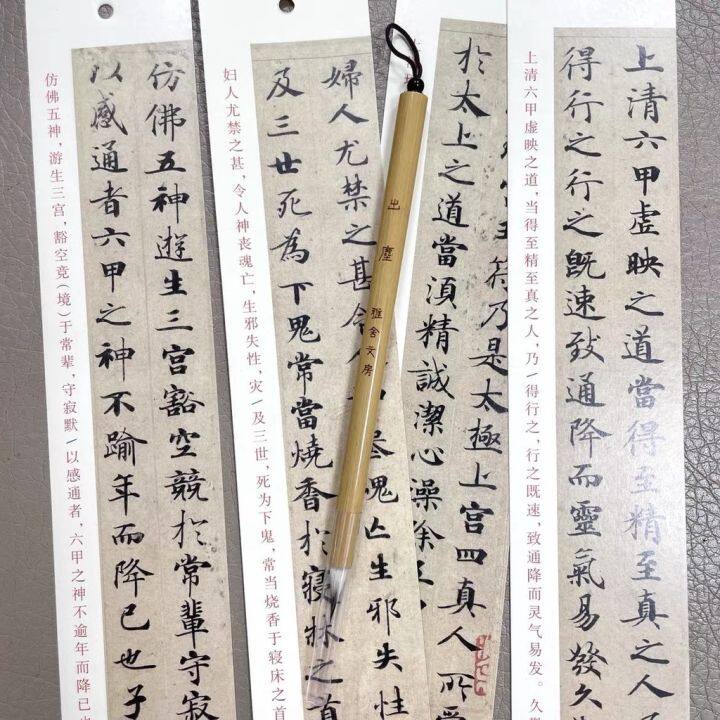 上清六甲虛映之道當得至精至真之人
得行之行之旣速致通降而靈氣易發久
上清六甲虚映之道，当得至精至真之人，乃/得行之，行之既速，致通降而灵气易发。久
符乃是太極上宮四真人所
於太上之道當湏精誠潔心澡除
出塵 雅舍文房
婦人尤禁之甚令 魂亡生邪失性
及三世死為下鬼常當燒香於寢牀之首
妇人尤禁之甚，令人神丧魂亡，生邪失性，灾/及三世，死为下鬼，常当烧香于寝床之首
仿佛五神遊生三宮豁空競於常輩守寂
以感通者六甲之神不踰年而降已也子
仿佛五神，游生三宫，豁空竞（境）于常辈，守寂默/以感通者，六甲之神不逾年而降已